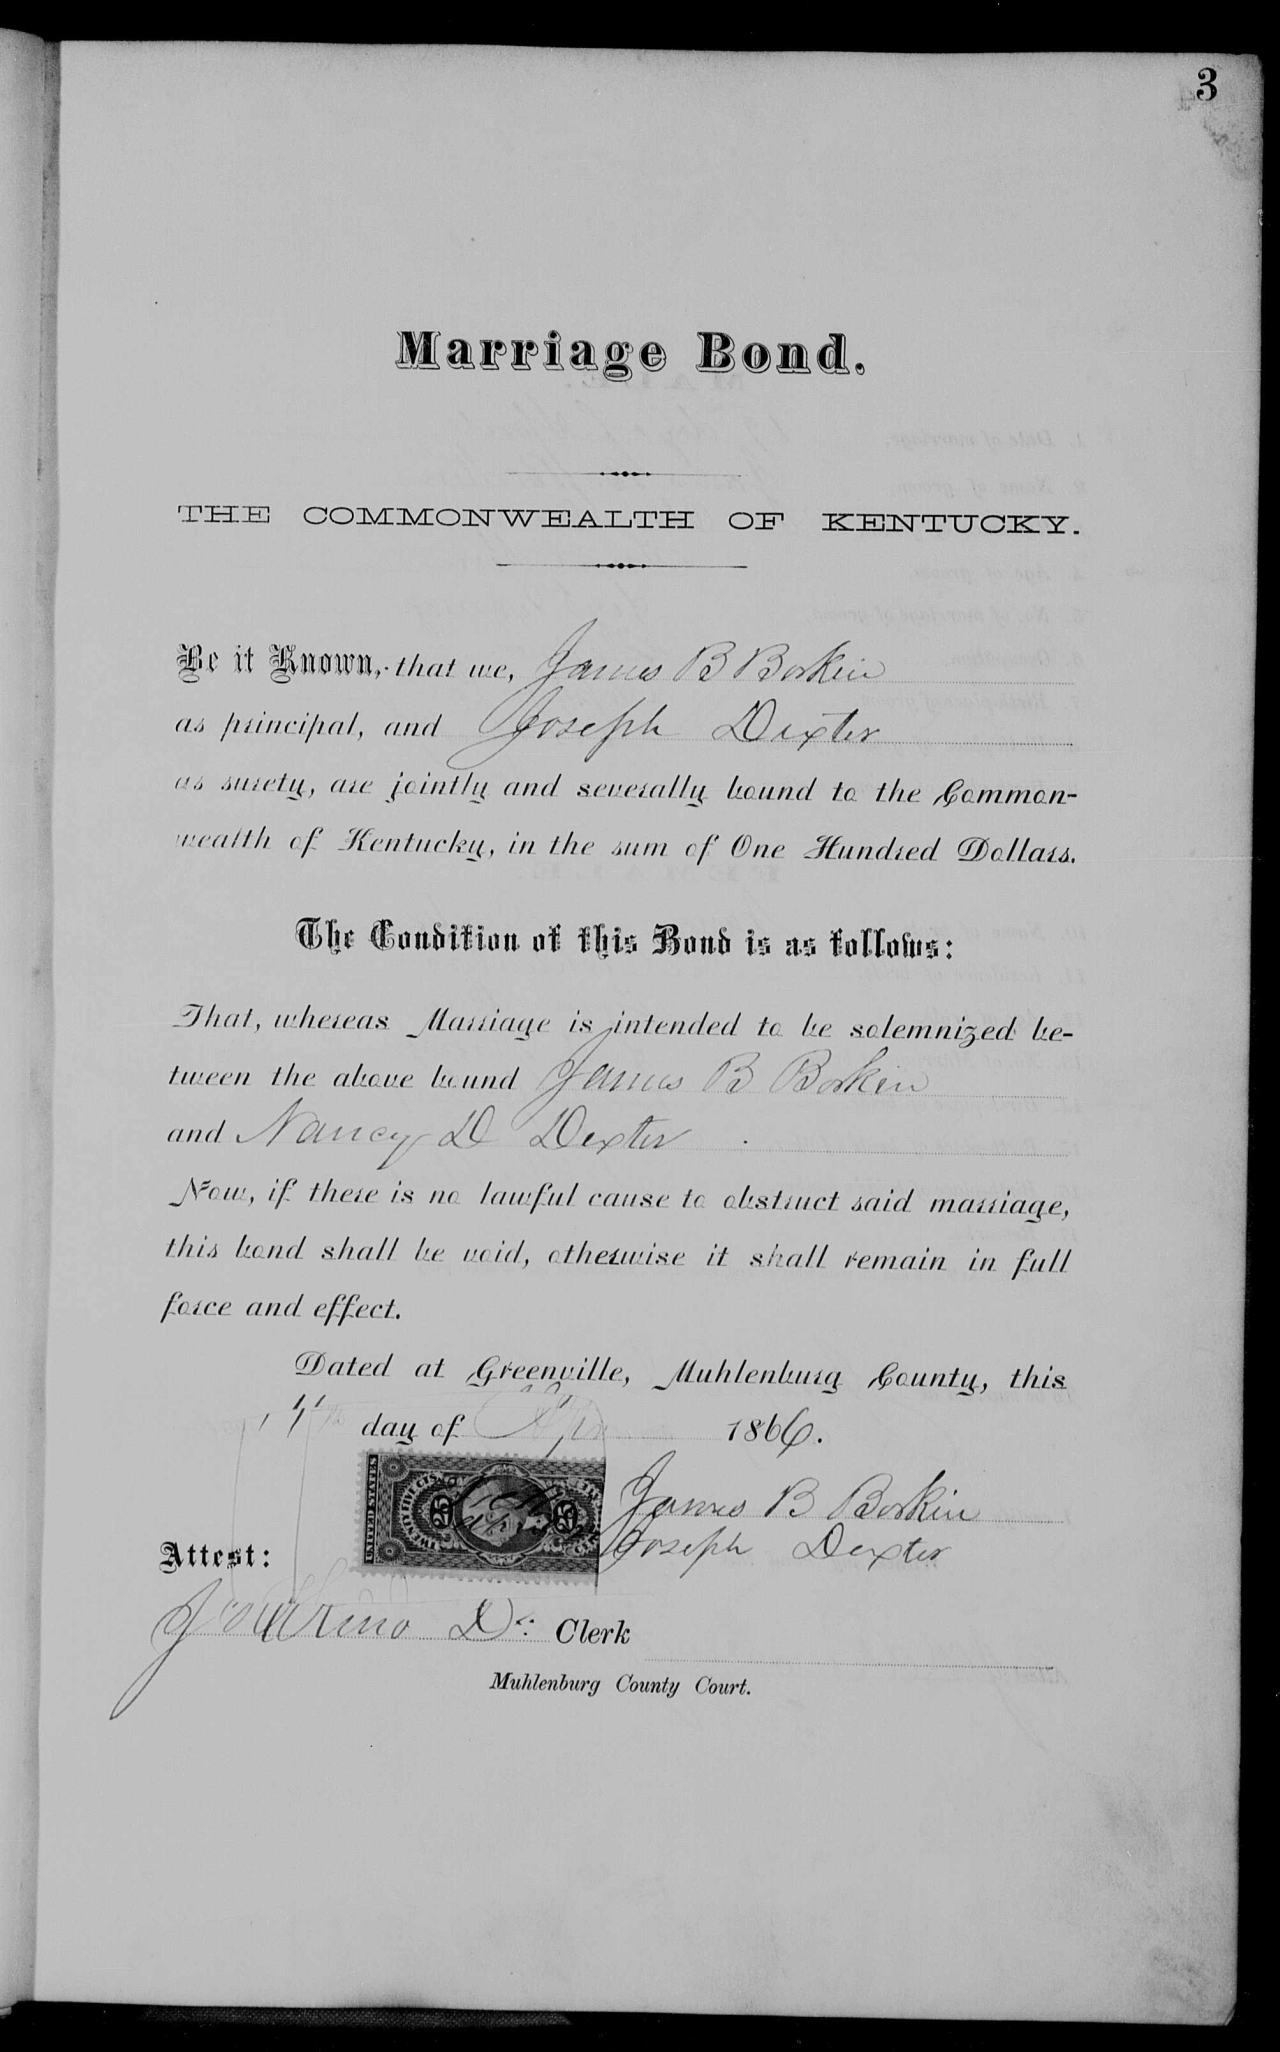 3
Marriage Bond.
THE COMMONWEALTH OF KENTUCKY.
Be it Known, that we, James B Borkin
as principal, and Joseph Dexter
as surety, are jointly and severally bound to the Common-
wealth of Kentucky, in the sum of One Hundred Dollars.
The Condition of this Bond is as follows:
That, whereas Marriage is intended to be solemnized be-
tween the above bound James B Borkin
and Nancy D Dexter
Now, if there is no lawful cause to obstruct said marriage,
this bond shall be void, otherwise it shall remain in full
force and effect.
Dated at Greenville, Muhlenburg County, this
day of 1866.
UNITED STATES
TWENTY FIVE CTS.
25 25
James B Borkin
Joseph Dexter
Attest:
Clerk
Muhlenburg County Court.